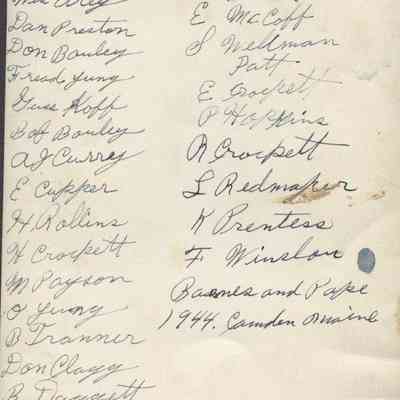 Dan Preston
Don Bouley
Fread Yung
Guss Koff
Bob Bouley
A J Currey
E Cupper
H Rollins
H Crockett
M Payson
O Yung
B Tranner
Don Clagg
B Daggett
E McCoff
S Wellman
Patt
E Crockett
P Hopkins
R Crockett
L Redmaker
K Prentess
F Winslow
Barnes and Pape
1944. Camden Maine